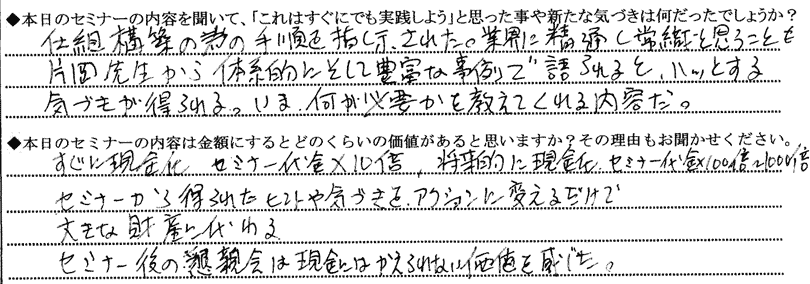 ◆本日のセミナーの内容を聞いて、「これはすぐにでも実践しよう」と思った事や新たな気づきは何だったでしょうか?
仕組構築の為の手順を指し示された。業界に精通し常識と思うことも
片岡先生から体系的にそして豊富な事例で語られると、ハッとする
気づきが得られる。いま、何が必要かを教えてくれる内容だ。
◆本日のセミナーの内容は金額にするとどのくらいの価値があると思いますか?その理由もお聞かせください。
すぐに現金化 セミナー代金×10倍、将来的に現金化 セミナー代金×100倍~1000倍
セミナーから得られたヒントや気づきを、アクションに変えるだけで
大きな財産に代わる
セミナー後の懇親会は現金にはかえられない価値を感じた。